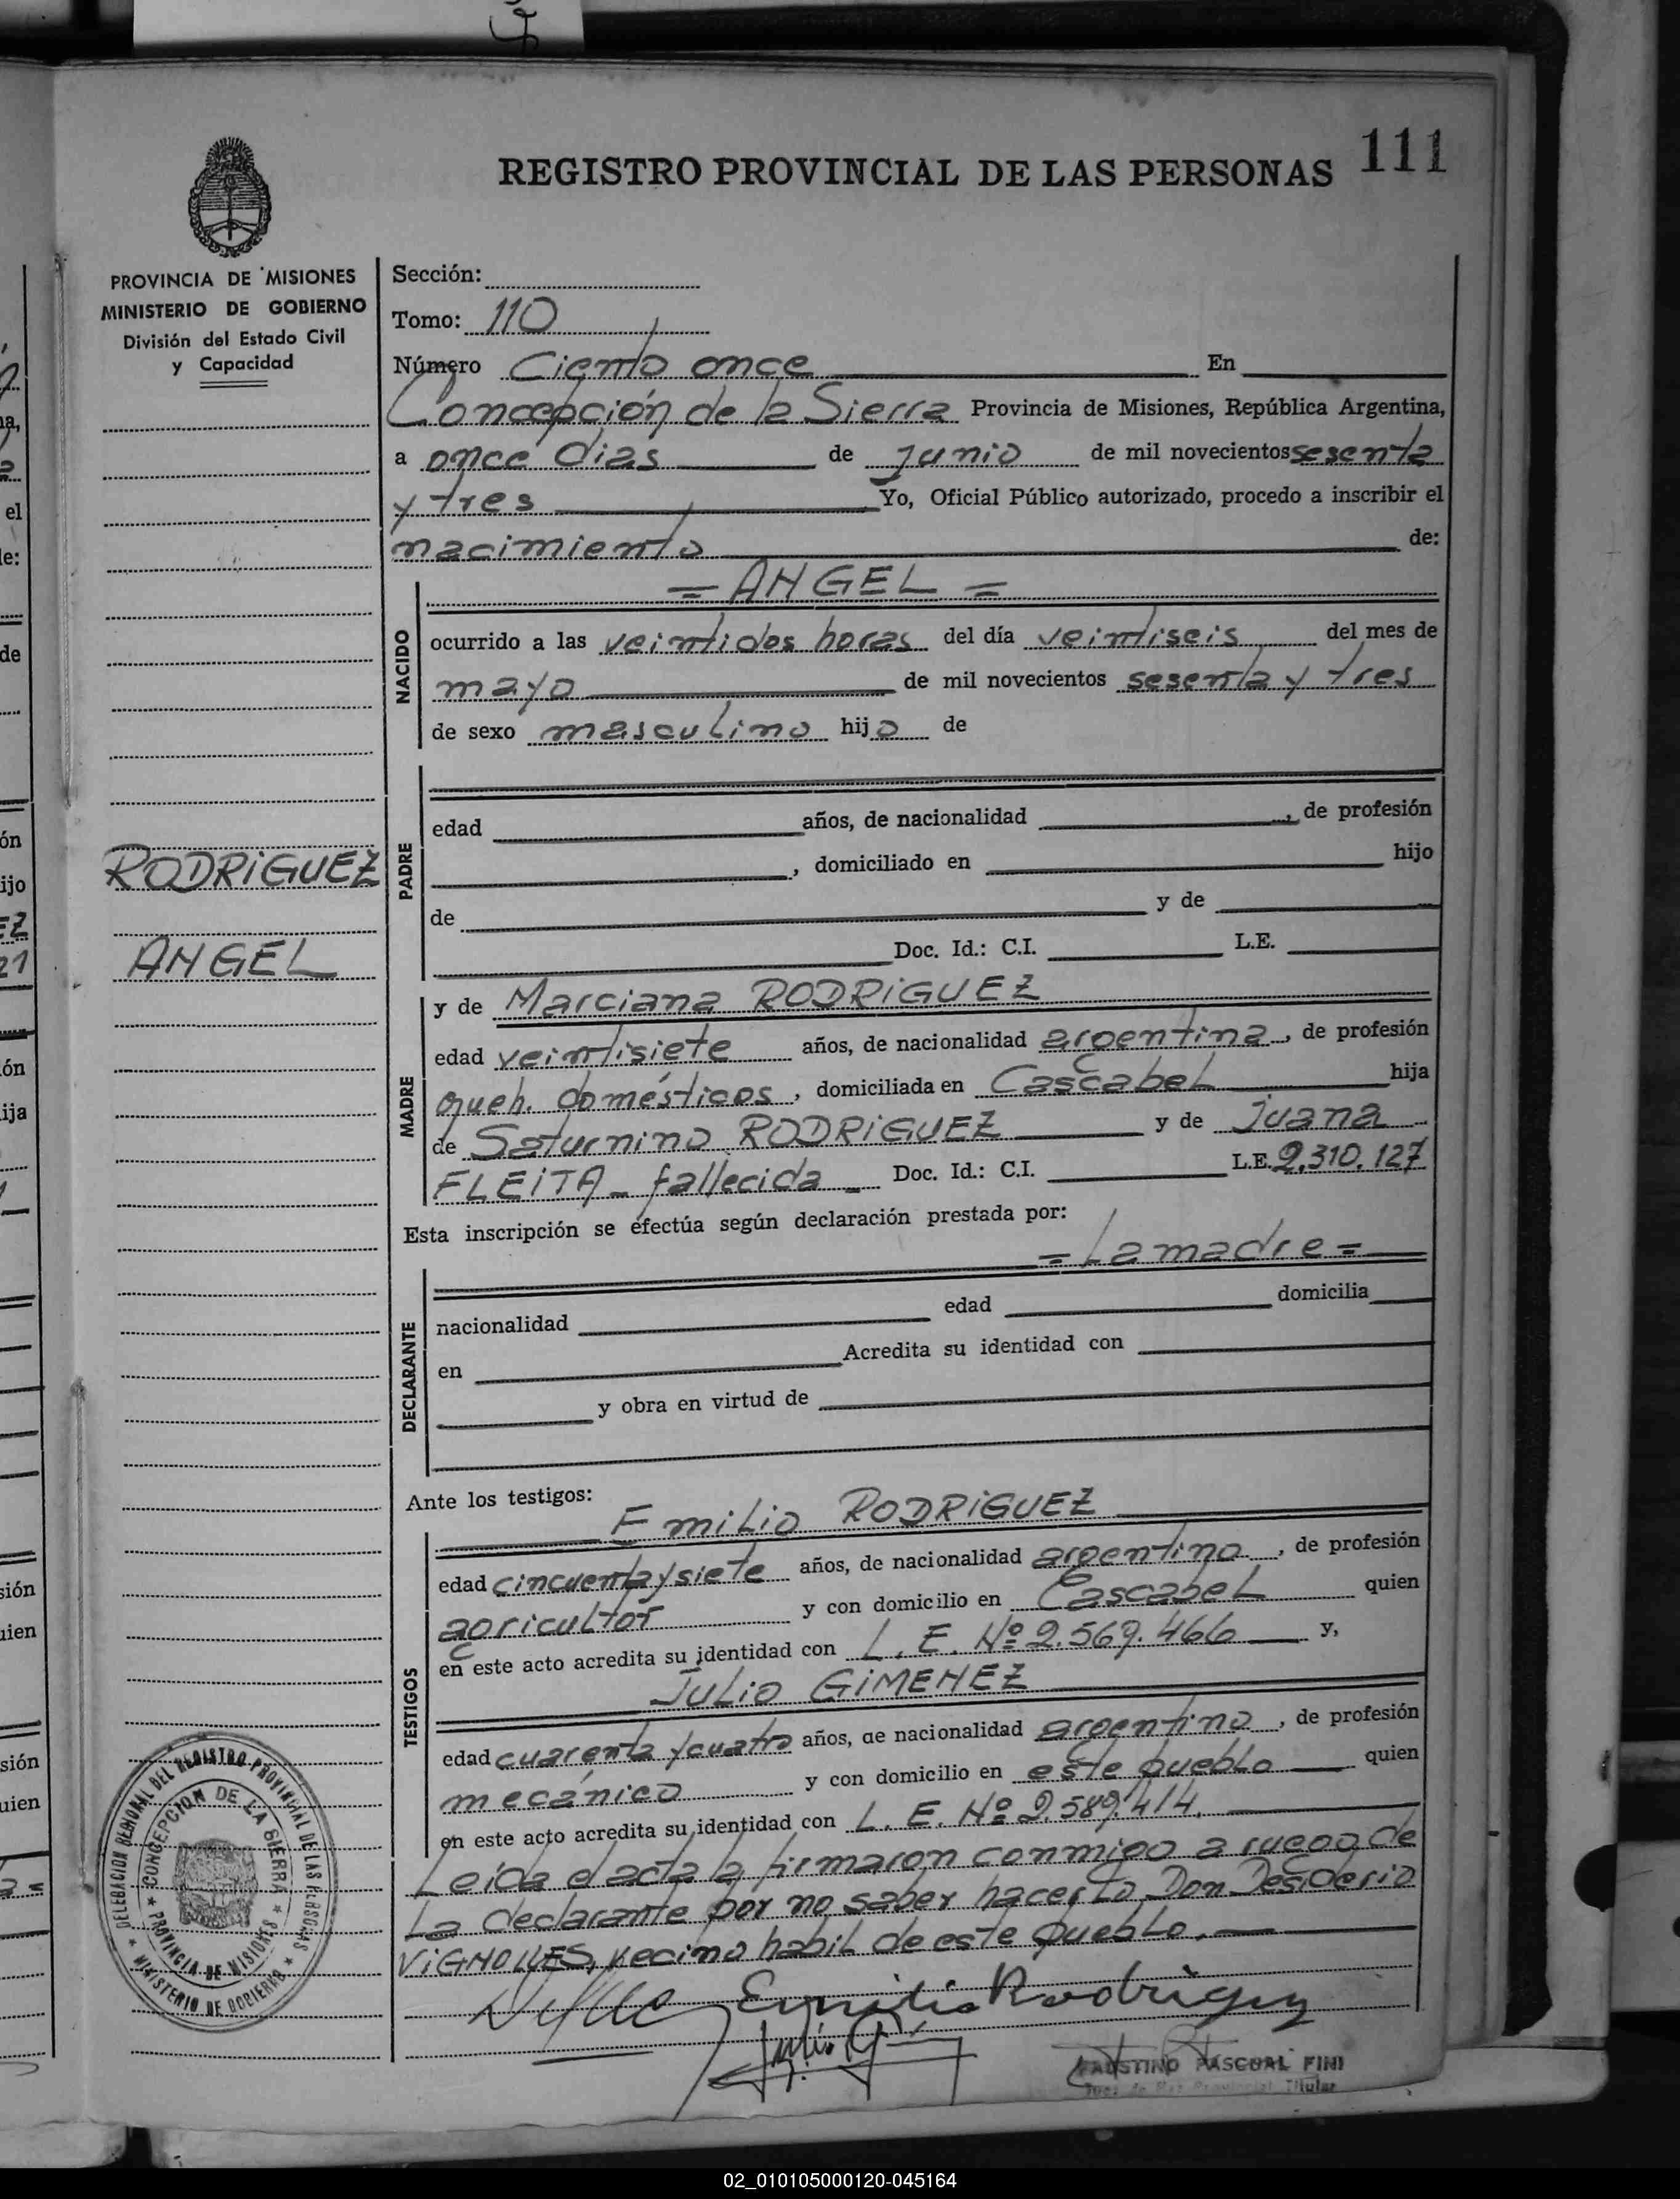 REGISTRO PROVINCIAL DE LAS PERSONAS 111
PROVINCIA DE MISIONES
MINISTERIO DE GOBIERNO
División del Estado Civil
y Capacidad
Sección:
Tomo: 110
Número Ciento once En
Concepción de la Sierra Provincia de Misiones, República Argentina,
a once dias de junio de mil novecientos sesenta
y tres Yo, Oficial Público autorizado, procedo a inscribir el
nacimiento de:
= ANGEL =
NACIDO
ocurrido a las veintidos horas del día veintiseis del mes de
mayo de mil novecientos sesenta y tres
de sexo masculino hijo de
PADRE
edad años, de nacionalidad , de profesión
, domiciliado en hijo
de y de
Doc. Id.: C.I. L.E.
RODRIGUEZ
ANGEL
MADRE
y de Marciana RODRIGUEZ
edad veintisiete años, de nacionalidad argentina, de profesión
queh. domésticos, domiciliada en Cascabel hija
de Saturnino RODRIGUEZ y de Juana
FLEITA - fallecida - Doc. Id.: C.I. L.E. 2.310.127
Esta inscripción se efectúa según declaración prestada por:
= La madre =
DECLARANTE
nacionalidad edad domicilia
en Acredita su identidad con
y obra en virtud de
Ante los testigos:
TESTIGOS
Emilio RODRIGUEZ
edad cincuenta y siete años, de nacionalidad argentino, de profesión
agricultor y con domicilio en Cascabel quien
en este acto acredita su identidad con L. E. Nº 2.569.466 y,
Julio GIMENEZ
edad cuarenta y cuatro años, de nacionalidad argentino, de profesión
mecánico y con domicilio en este pueblo quien
en este acto acredita su identidad con L. E. Nº 2.589.414.
Leída el acta la firmaron conmigo a ruego de
la declarante por no saber hacerlo Don Desiderio
VIGNOLLES, vecino habil de este pueblo.
Emilio Rodriguez
Julio
FAUSTINO PASCUAL FINI
Juez de Paz Provincial Titular
DELEGACION REGIONAL DEL REGISTRO PROVINCIAL DE LAS PERSONAS
* MINISTERIO DE GOBIERNO *
* CONCEPCION DE LA SIERRA *
PROVINCIA DE MISIONES
02_010105000120-045164